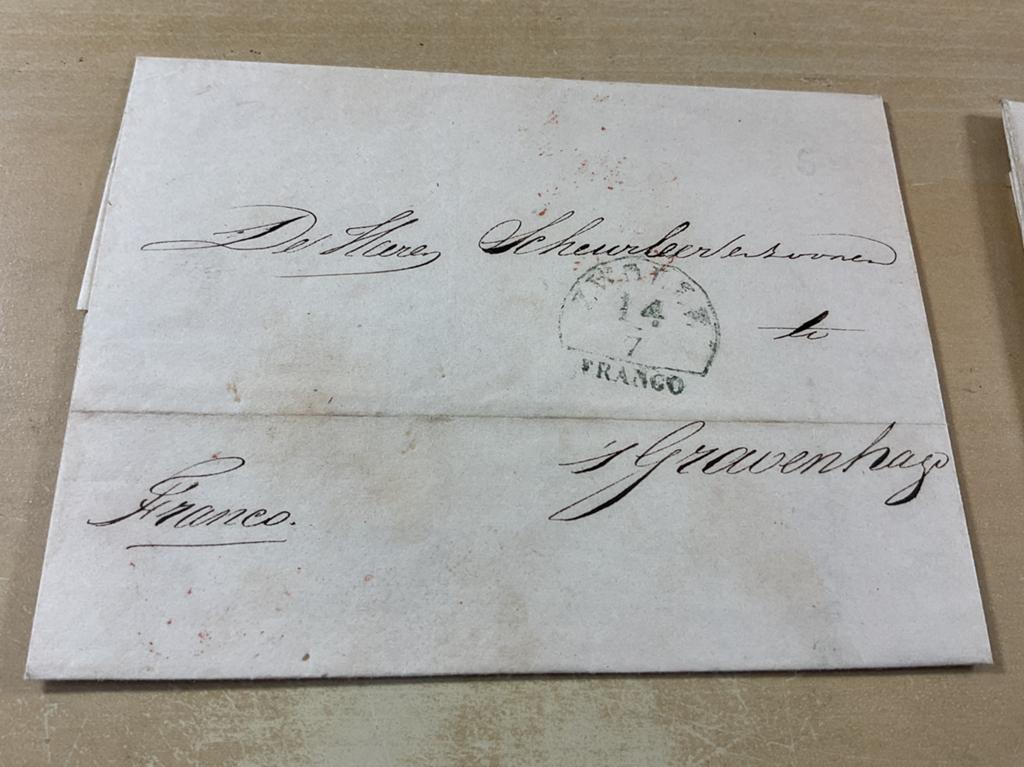 De Heeren Scheurleer & Zoonen
ZWOLLE
14
7
FRANCO
te
's Gravenhage
Franco.